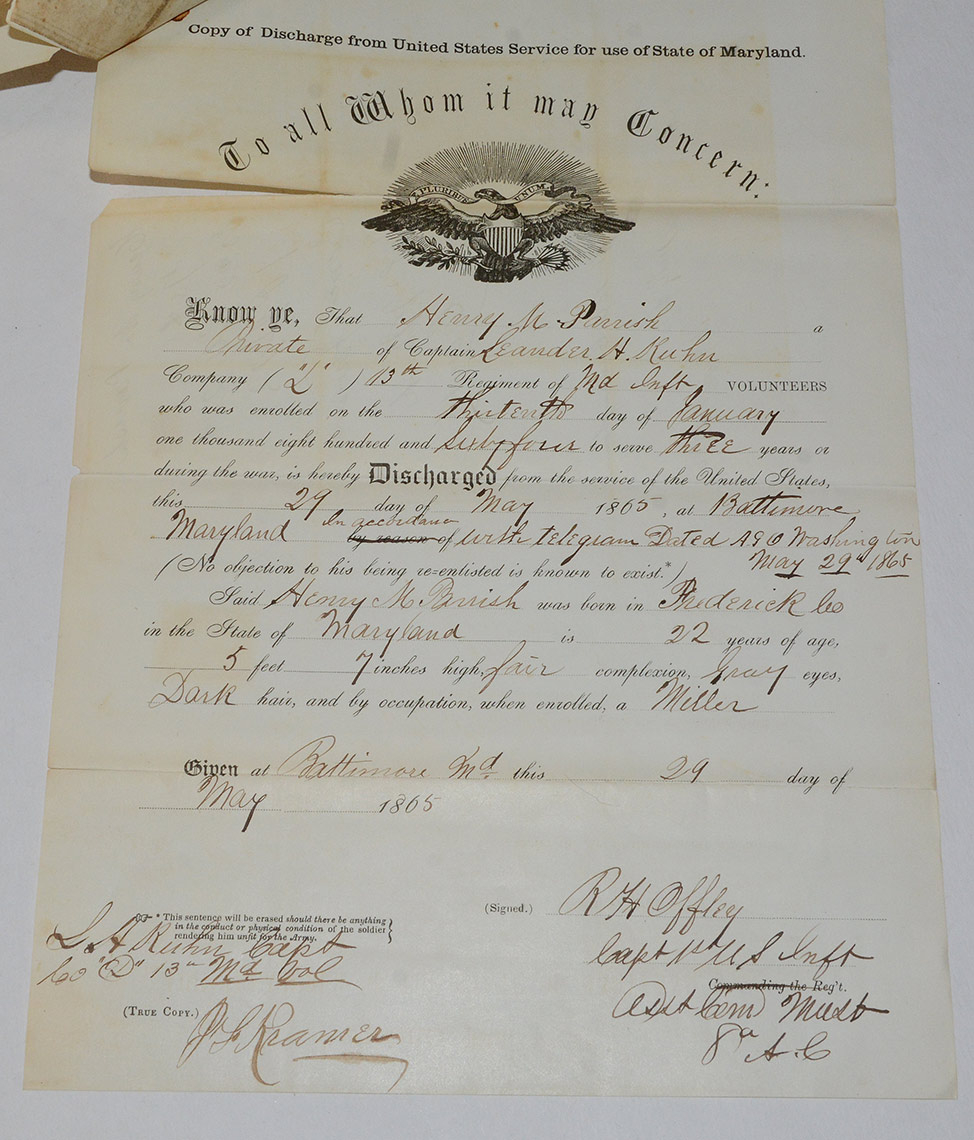 Copy of Discharge from United States Service for use of State of Maryland.
To all Whom it may Concern:
E PLURIBUS UNUM
Know ye, That Henry M. Parrish a
Private of Captain Leander H. Kuhn
Company ( "L" ) 13th Regiment of Md Inft VOLUNTEERS
who was enrolled on the thirtenth day of January
one thousand eight hundred and Sixty four to serve three years or
during the war, is hereby Discharged from the service of the United States,
this 29 day of May 1865, at Baltimore
Maryland In accordance by reason of with telegram Dated AGO Washington
May 29th 1865
(No objection to his being re-enlisted is known to exist.*)
Said Henry M Parrish was born in Frederick Co
in the State of Maryland is 22 years of age,
5 feet 7 inches high, fair complexion, Gray eyes,
Dark hair, and by occupation, when enrolled, a Miller
Given at Baltimore Md. this 29 day of
May 1865
* This sentence will be erased should there be anything
in the conduct or physical condition of the soldier
rendering him unfit for the Army.
L H Kuhn Capt
Co "D" 13th Md Vol
(TRUE COPY.) Kramer
(Signed.) R H Offley
Capt 1st U S Inft
Commanding the Reg't.
Asst Com Must
8th A. C